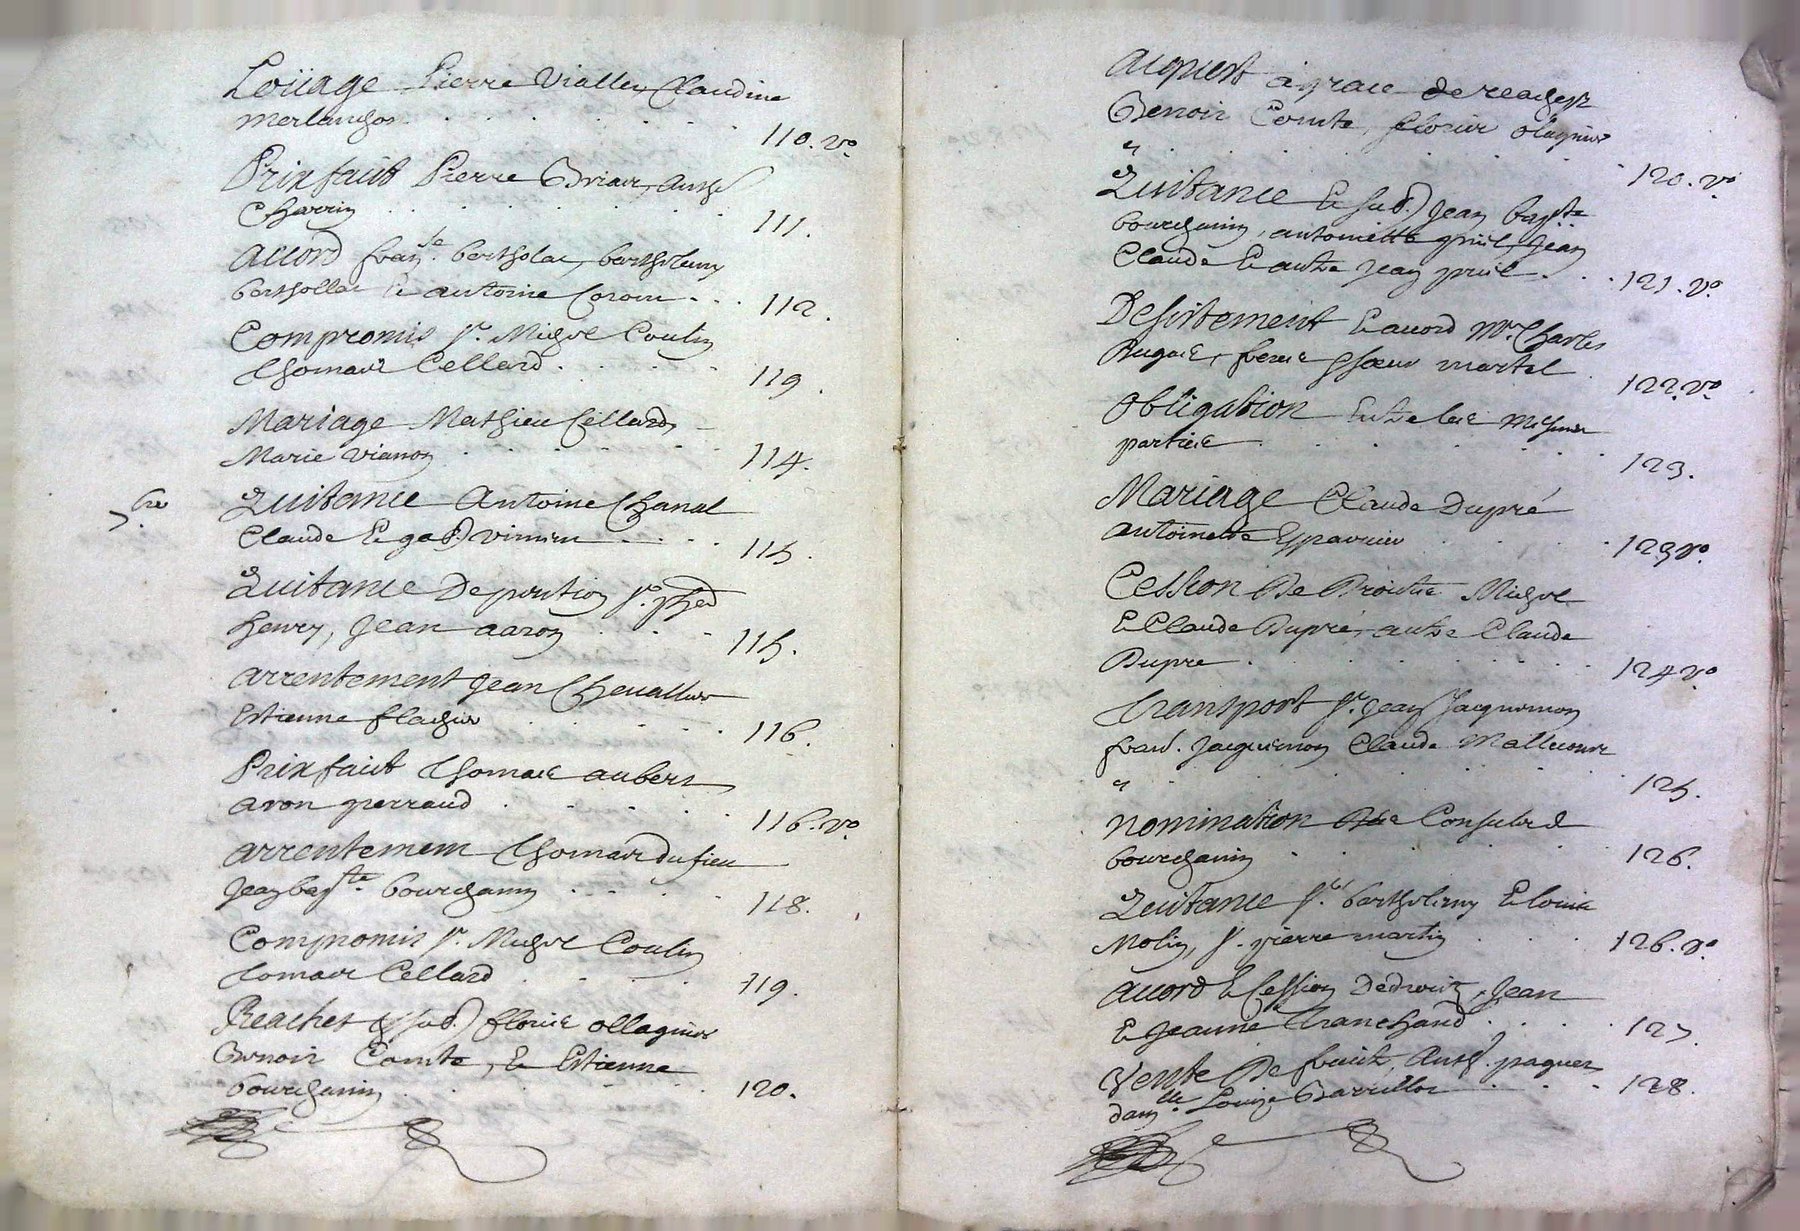 Loüage Pierre Vialley, Claudine
Merlanchon 110. vo.
Prix fait Pierre Briair, Anth.
Charrin 111.
Accord fran.se bertholat, berthelemy
berthollat & antoine Coront 112.
Compromis Sr. Michel Coulin
Thomais Cellard 119.
Mariage Mathieu Cellard,
Marie Vianon 114.
7.bre Quitance Antoine Chanal
Claude & gab.l 115.
Quitance De portion Sr.
henry, Jean aaron 115.
arrentement Jean Chevallier
Estienne flachier 116.
Prix fait Thomas aubert
aron perraud 116. vo
arrentement Thomas Dufieu
Jean bap.te bourchanin 118.
Compromis Sr. Michel Coulin
Tomais Cellard 119.
Reachet & sub.) florie ollagnier
Benoit Comte, & Estienne
bourchanin 120.
acquest a grace de reachept
Benoit Comte, florie olagnier
" 120. vo
Quitance & sub.) Jean bapte
bourchanin, antoinette Jean
Claude & autre Jean 121. vo.
Desistement & accord Mr. Charles
frere & soeur martel 122. vo.
Obligation Entre les mesmes
parties 123.
Mariage Claude Dupré
antoinette Espavrier 123 vo.
Cession De Droits Michel
& Claude Dupré, autre Claude
Dupre 124 vo
Transport Sr. Jean Jacquemon
fran.s Jacquemon Claude
" 125.
Nomination De Consuls de
bourchanin 126.
Quitance Srs. berthelemy & louis
Molin, Sr. pierre martin 126. vo.
Accord & Cession De droits, Jean
& Jeanne Tranchand 127.
Vente De fruits, Anth. paquet
dam.lle Louize Barrillot 128.